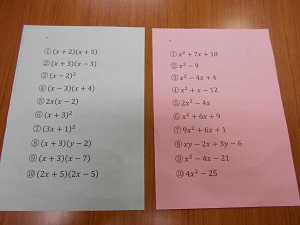 ① (x + 2)(x + 5)
② (x + 3)(x − 3)
③ (x − 2)²
④ (x − 3)(x + 4)
⑤ 2x(x − 2)
⑥ (x + 3)²
⑦ (3x + 1)²
⑧ (x + 3)(y − 2)
⑨ (x + 3)(x − 7)
⑩ (2x + 5)(2x − 5)
① x² + 7x + 10
② x² − 9
③ x² − 4x + 4
④ x² + x − 12
⑤ 2x² − 4x
⑥ x² + 6x + 9
⑦ 9x² + 6x + 1
⑧ xy − 2x + 3y − 6
⑨ x² − 4x − 21
⑩ 4x² − 25